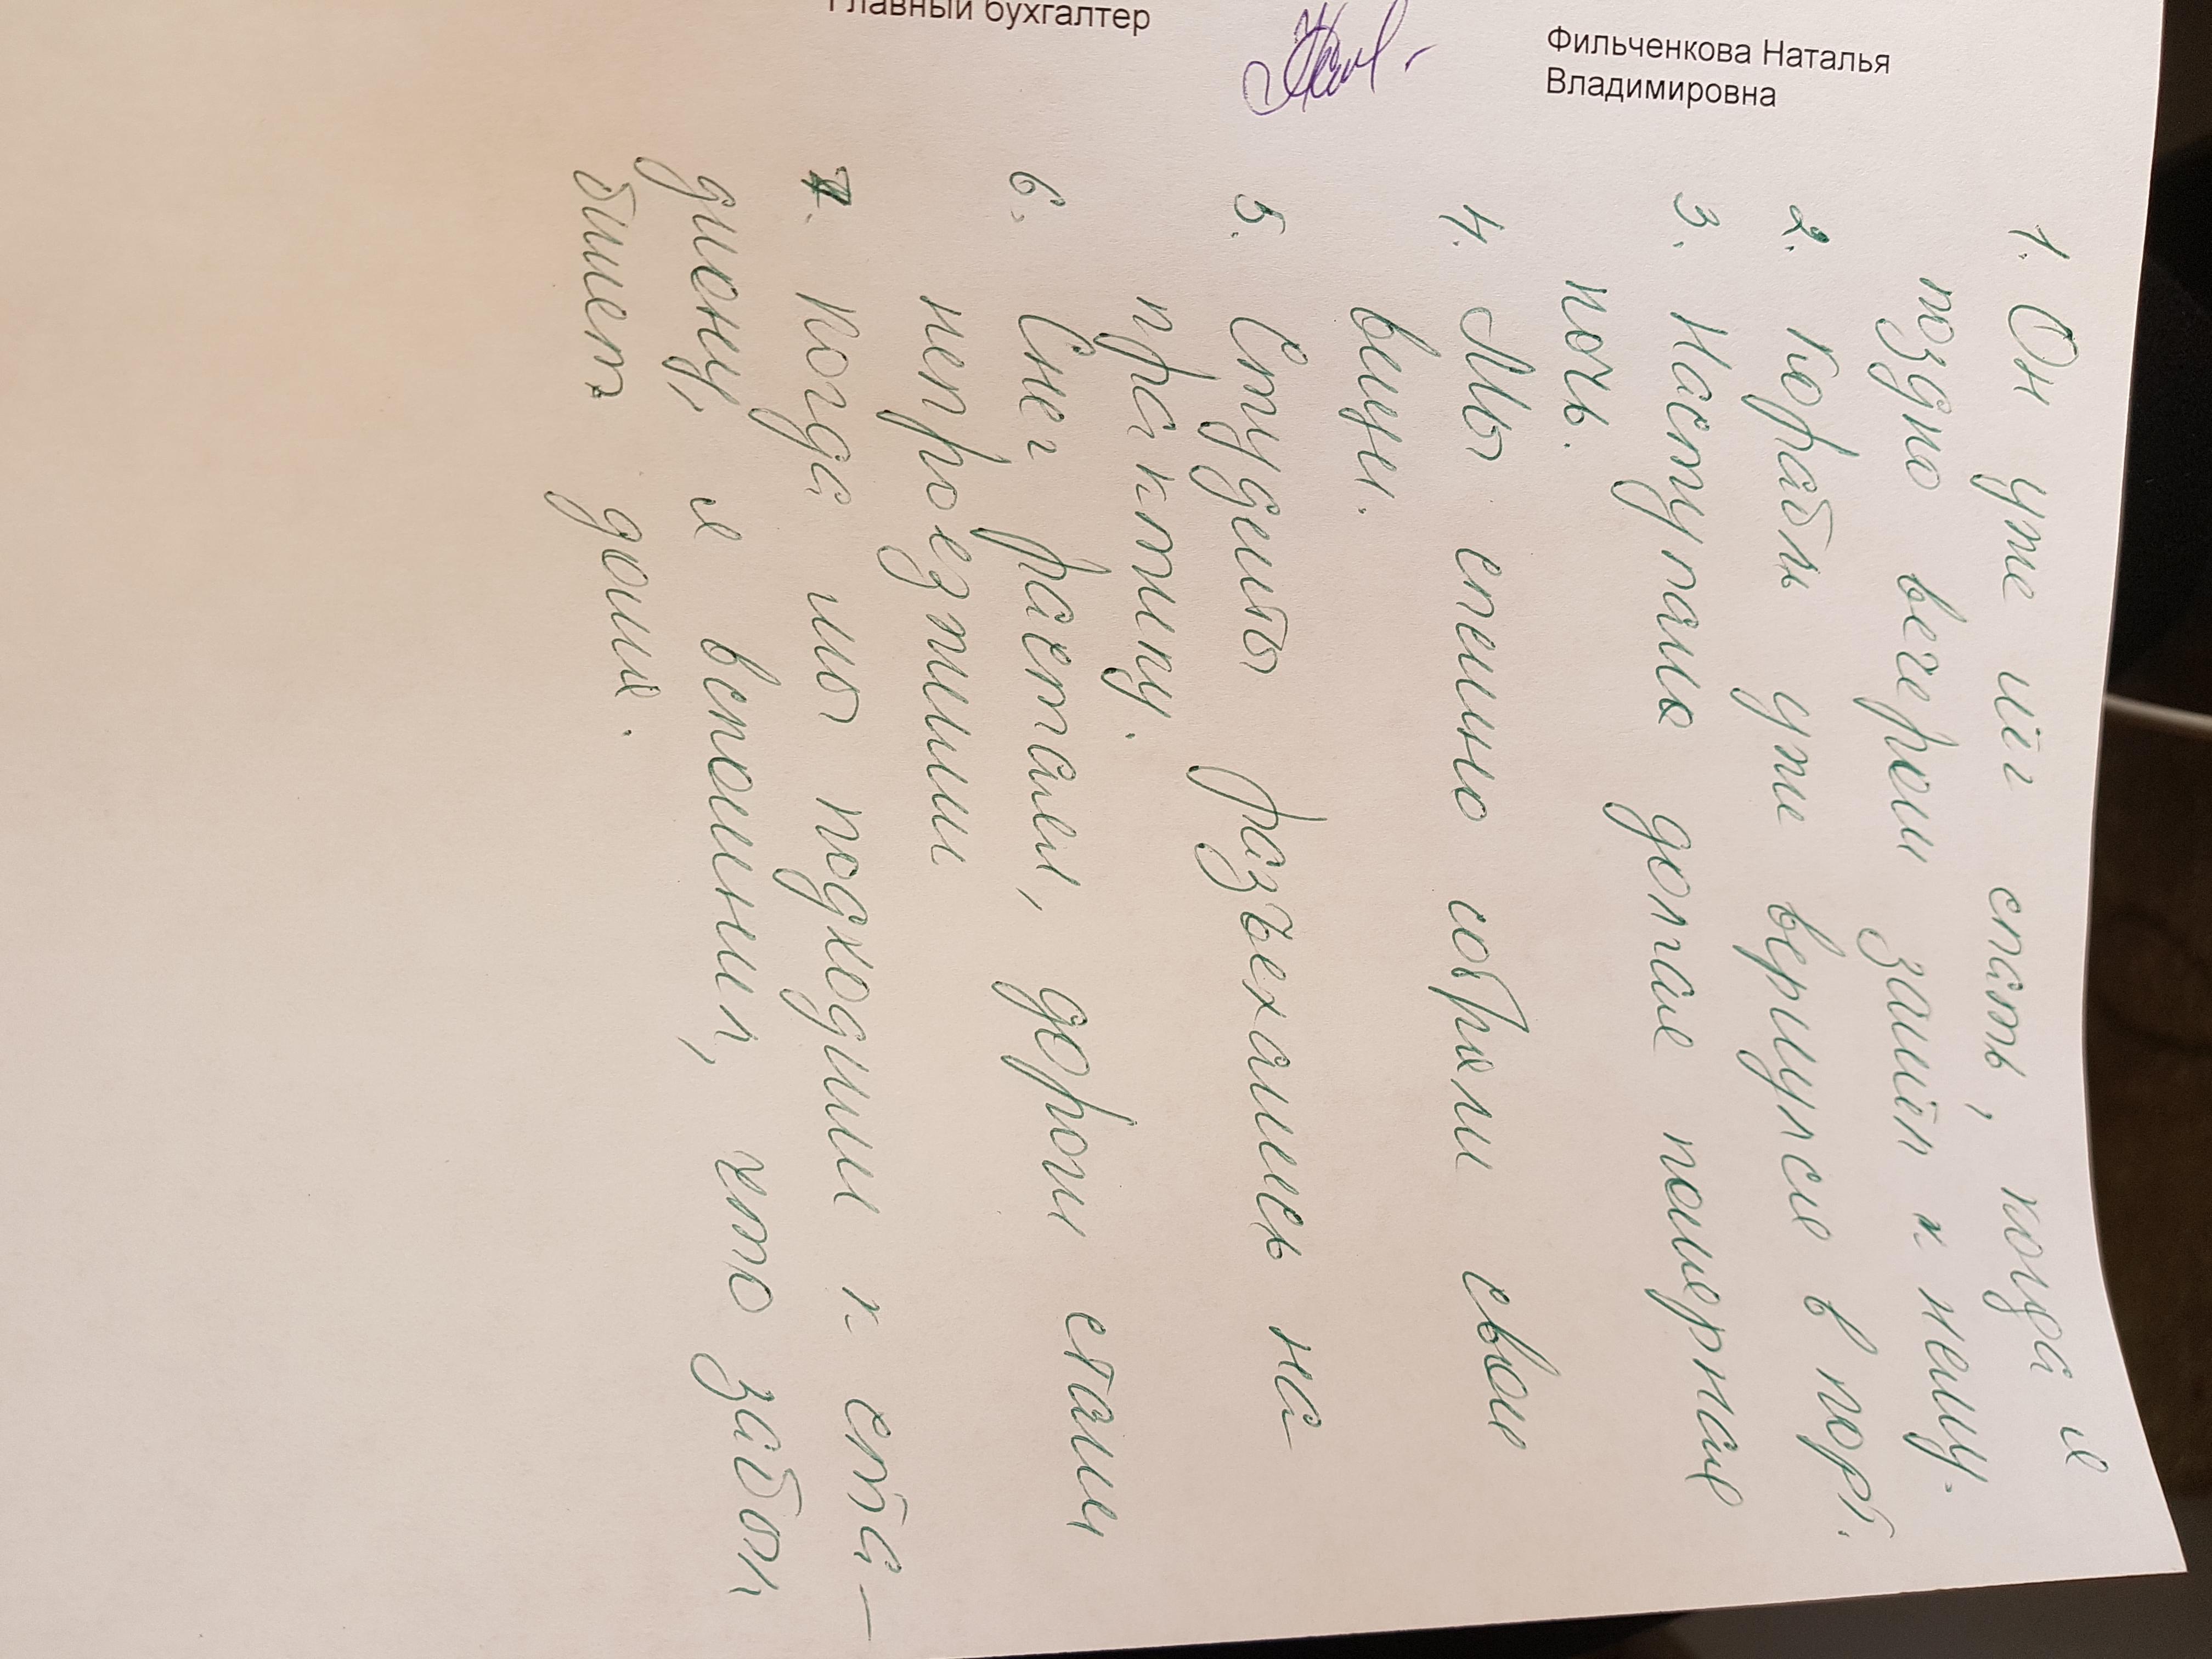 Главный бухгалтер
Фильченкова Наталья
Владимировна
1. Он уже лёг спать, когда я
поздно вечером зашёл к нему.
2. Корабль уже вернулся в порт.
3. Наступала долгая полярная
ночь.
4. Мы спешно собрали свои
вещи.
5. Студенты разъехались на
практику.
6. Снег растаял, дороги стали
непроезжими
7. Когда мы подходили к ста-
диону, я вспомнил, что забыл
билет дома.